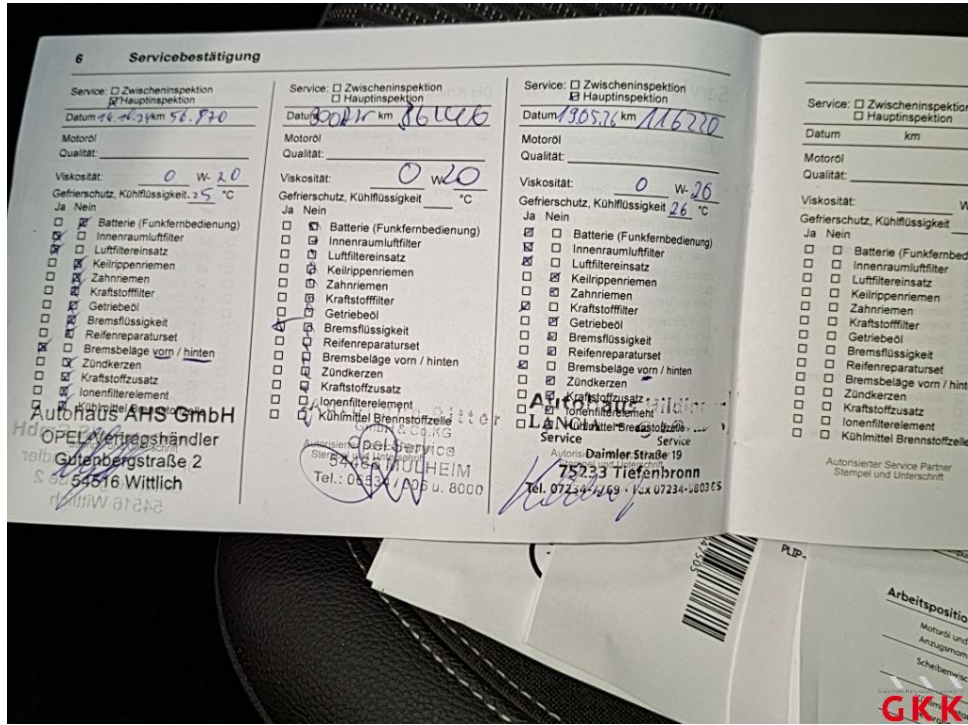 6 Servicebestätigung
Service: ☐ Zwischeninspektion
☒ Hauptinspektion
Datum km 56.870
Motoröl
Qualität:
Viskosität: 0 W-20
Gefrierschutz, Kühlflüssigkeit. -25 °C
Ja Nein
Batterie (Funkfernbedienung)
Innenraumluftfilter
Luftfiltereinsatz
Keilrippenriemen
Zahnriemen
Kraftstofffilter
Getriebeöl
Bremsflüssigkeit
Reifenreparaturset
Bremsbeläge vorn / hinten
Zündkerzen
Kraftstoffzusatz
Ionenfilterelement
Kühlmittel Brennstoffzelle
Autohaus AHS GmbH
OPEL Vertragshändler
Gutenbergstraße 2
54516 Wittlich
Service: ☐ Zwischeninspektion
☐ Hauptinspektion
Datum km
Motoröl
Qualität:
Viskosität: 0 W20
Gefrierschutz, Kühlflüssigkeit °C
Ja Nein
Batterie (Funkfernbedienung)
Innenraumluftfilter
Luftfiltereinsatz
Keilrippenriemen
Zahnriemen
Kraftstofffilter
Getriebeöl
Bremsflüssigkeit
Reifenreparaturset
Bremsbeläge vorn / hinten
Zündkerzen
Kraftstoffzusatz
Ionenfilterelement
Kühlmittel Brennstoffzelle
GmbH & Co.KG
Opel Service
MÜLHEIM
Tel.: u. 8000
Service: ☐ Zwischeninspektion
☒ Hauptinspektion
Datum 19.05.26 km 116220
Motoröl
Qualität:
Viskosität: 0 W-26
Gefrierschutz, Kühlflüssigkeit 26 °C
Ja Nein
Batterie (Funkfernbedienung)
Innenraumluftfilter
Luftfiltereinsatz
Keilrippenriemen
Zahnriemen
Kraftstofffilter
Getriebeöl
Bremsflüssigkeit
Reifenreparaturset
Bremsbeläge vorn / hinten
Zündkerzen
Kraftstoffzusatz
Ionenfilterelement
Kühlmittel Brennstoffzelle
Autohaus
LANCIA
Service Service
Daimler Straße 19
75233 Tiefenbronn
Service: ☐ Zwischeninspektion
☐ Hauptinspektion
Datum km
Motoröl
Qualität:
Viskosität: W
Gefrierschutz, Kühlflüssigkeit
Ja Nein
Batterie (Funkfernbed
Innenraumluftfilter
Luftfiltereinsatz
Keilrippenriemen
Zahnriemen
Kraftstofffilter
Getriebeöl
Bremsflüssigkeit
Reifenreparaturset
Bremsbeläge vorn / hint
Zündkerzen
Kraftstoffzusatz
Ionenfilterelement
Kühlmittel Brennstoffzelle
Autorisierter Service Partner
Stempel und Unterschrift
PLIP-
Arbeitspositio
Motoröl und
Anzugsmom
Scheibenwisc
GKK